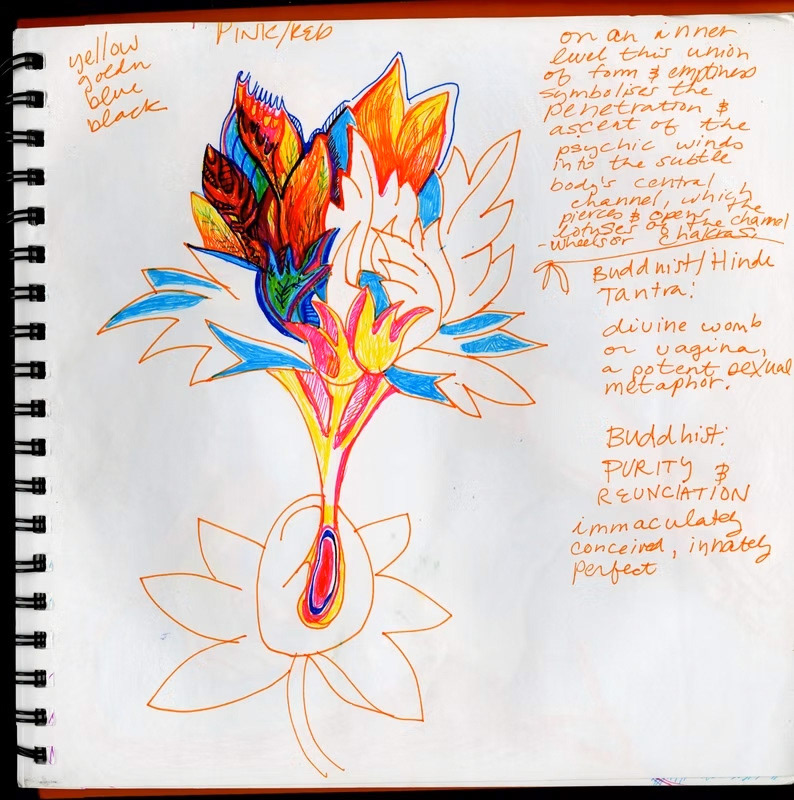 yellow
goldn
blue
black
PINK/RED
on an inner
level this union
of form & emptiness
symbolises the
penetration &
ascent of the
psychic winds
into the subtle
body's central
channel, which
pierces & opens the
lotuses of the channel
- wheels or chakras.
Buddhist/Hindu
Tantra:
divine womb
or vagina,
a potent sexual
metaphor.
Buddhist:
PURITY &
REUNCIATION
immaculately
conceived, innately
perfect